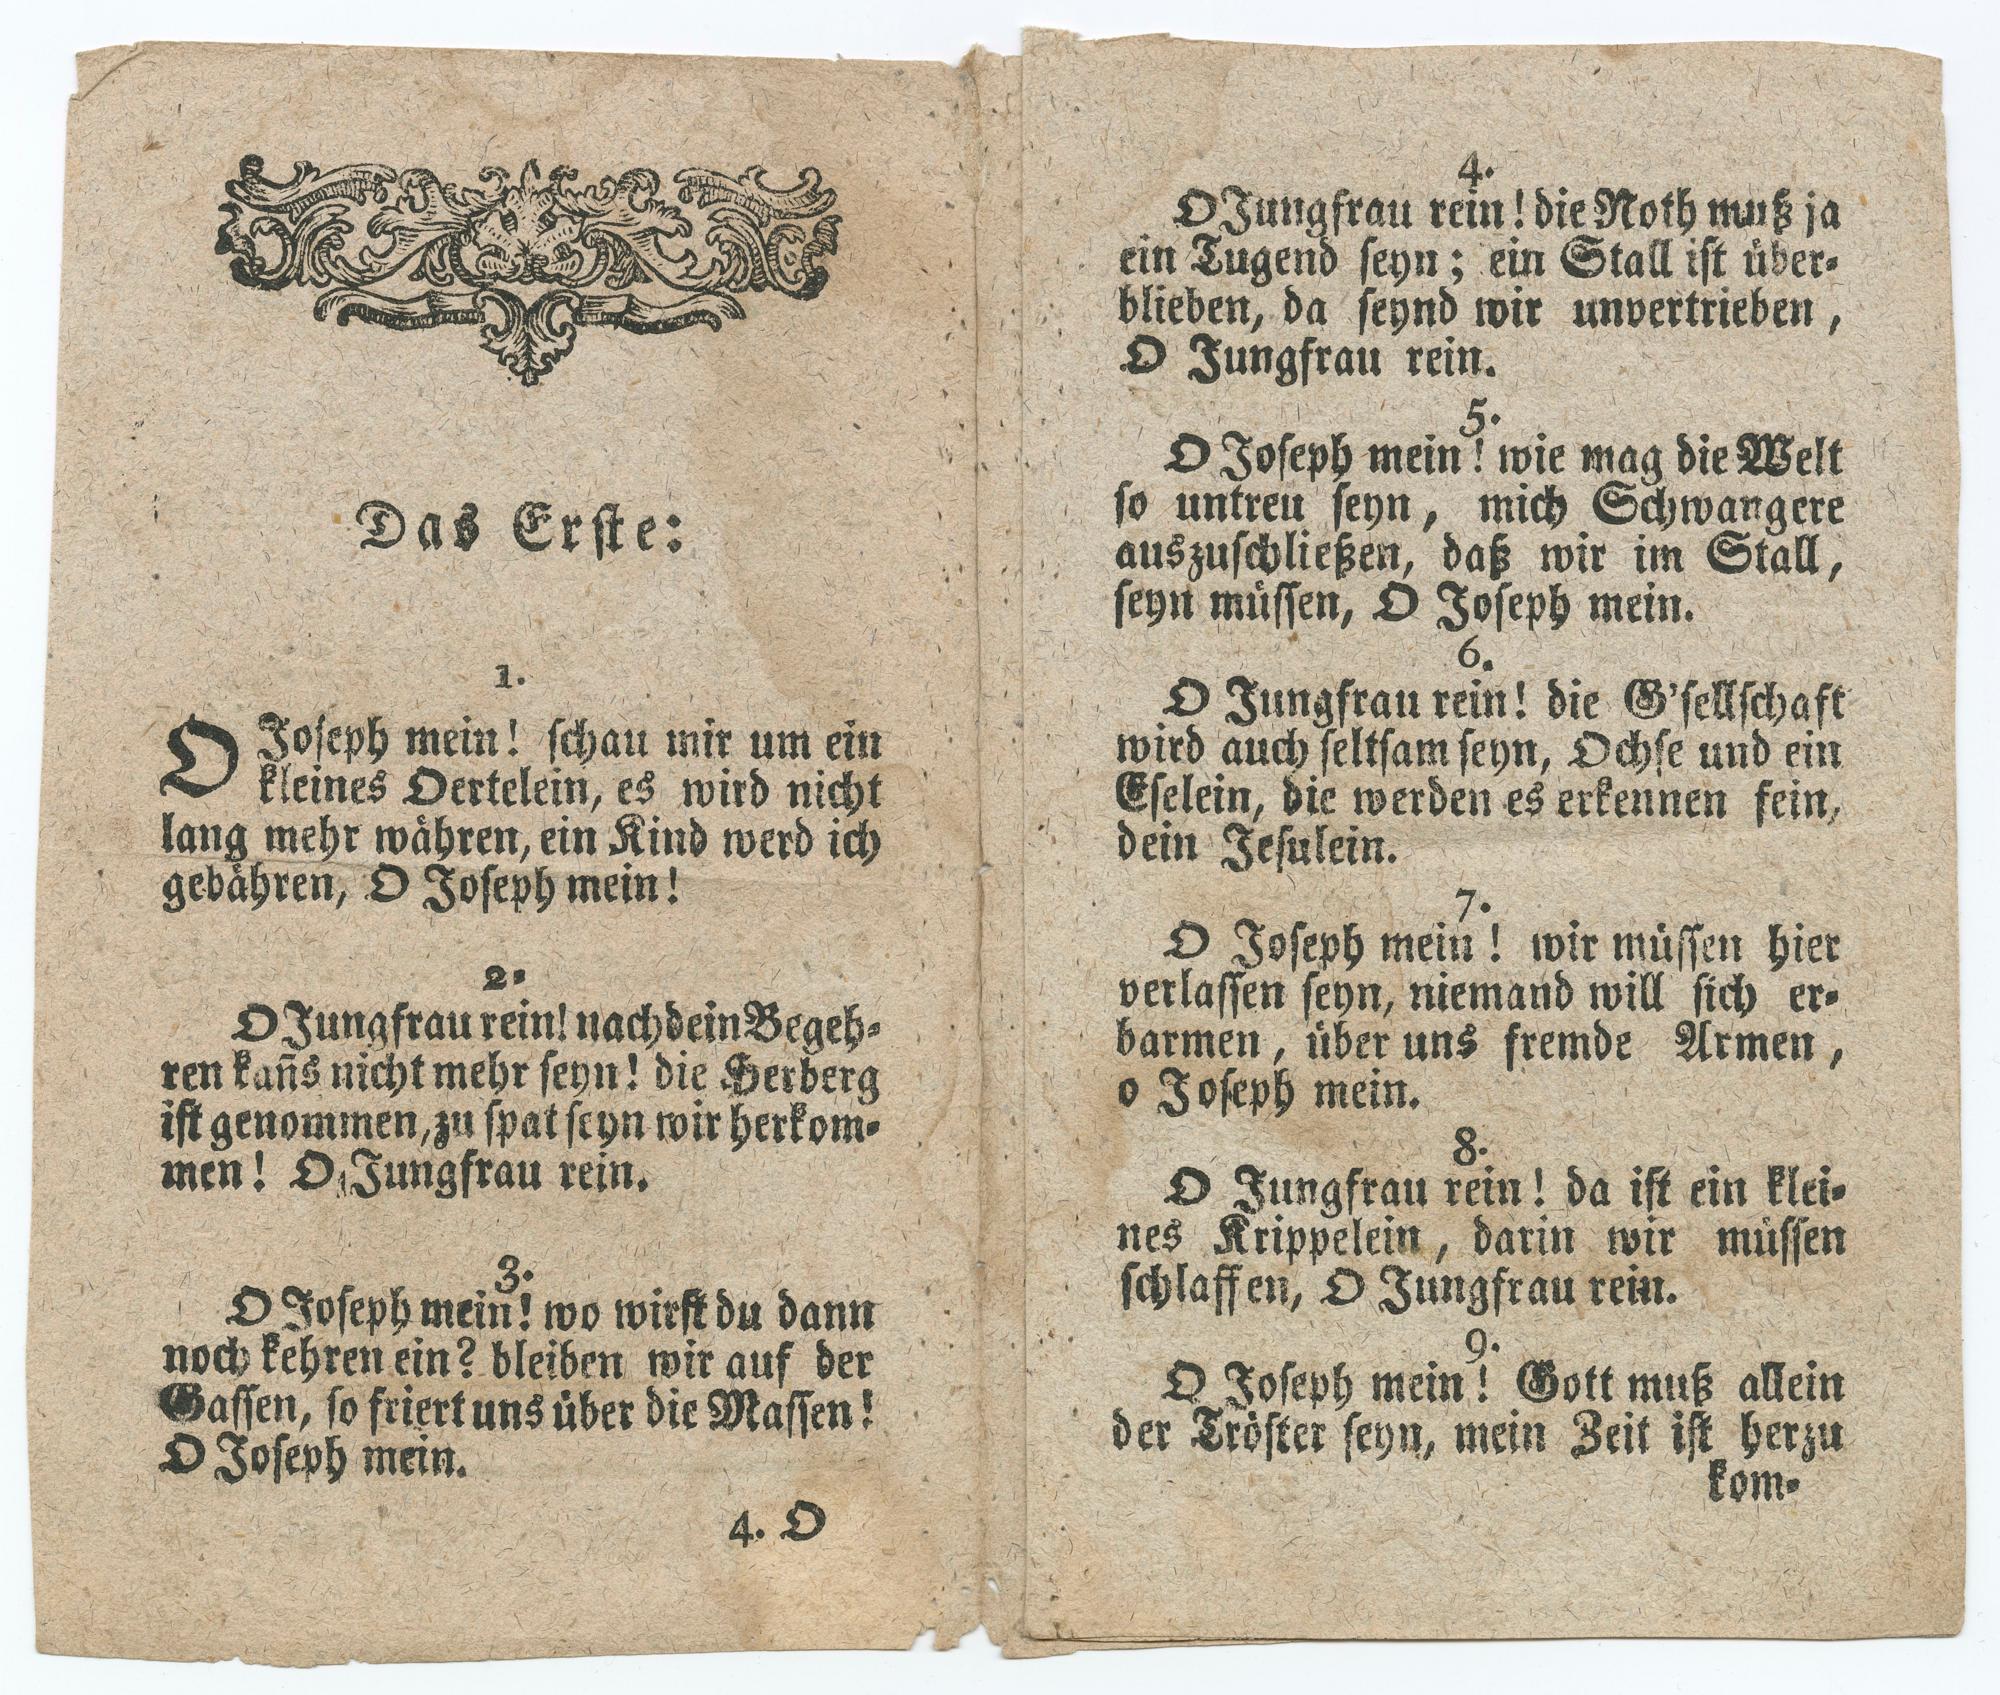 Das Erste:
1.
O Joseph mein! schau mir um ein
kleines Oertelein, es wird nicht
lang mehr währen, ein Kind werd ich
gebähren, O Joseph mein!
2.
O Jungfrau rein! nach dein Begeh-
ren kan̄s nicht mehr seyn! die Herberg
ist genommen, zu spat seyn wir herkom-
men! O Jungfrau rein.
3.
O Joseph mein! wo wirst du dann
noch kehren ein? bleiben wir auf der
Gassen, so friert uns über die Massen!
O Joseph mein.
4. O
4.
O Jungfrau rein! die Noth muß ja
ein Tugend seyn; ein Stall ist über-
blieben, da seynd wir unvertrieben,
O Jungfrau rein.
5.
O Joseph mein! wie mag die Welt
so untreu seyn, mich Schwangere
auszuschließen, daß wir im Stall,
seyn müssen, O Joseph mein.
6.
O Jungfrau rein! die G'sellschaft
wird auch seltsam seyn, Ochse und ein
Eselein, die werden es erkennen fein,
dein Jesulein.
7.
O Joseph mein! wir müssen hier
verlassen seyn, niemand will sich er-
barmen, über uns fremde Armen,
o Joseph mein.
8.
O Jungfrau rein! da ist ein klei-
nes Krippelein, darin wir müssen
schlaffen, O Jungfrau rein.
9.
O Joseph mein! Gott muß allein
der Tröster seyn, mein Zeit ist herzu
kom-